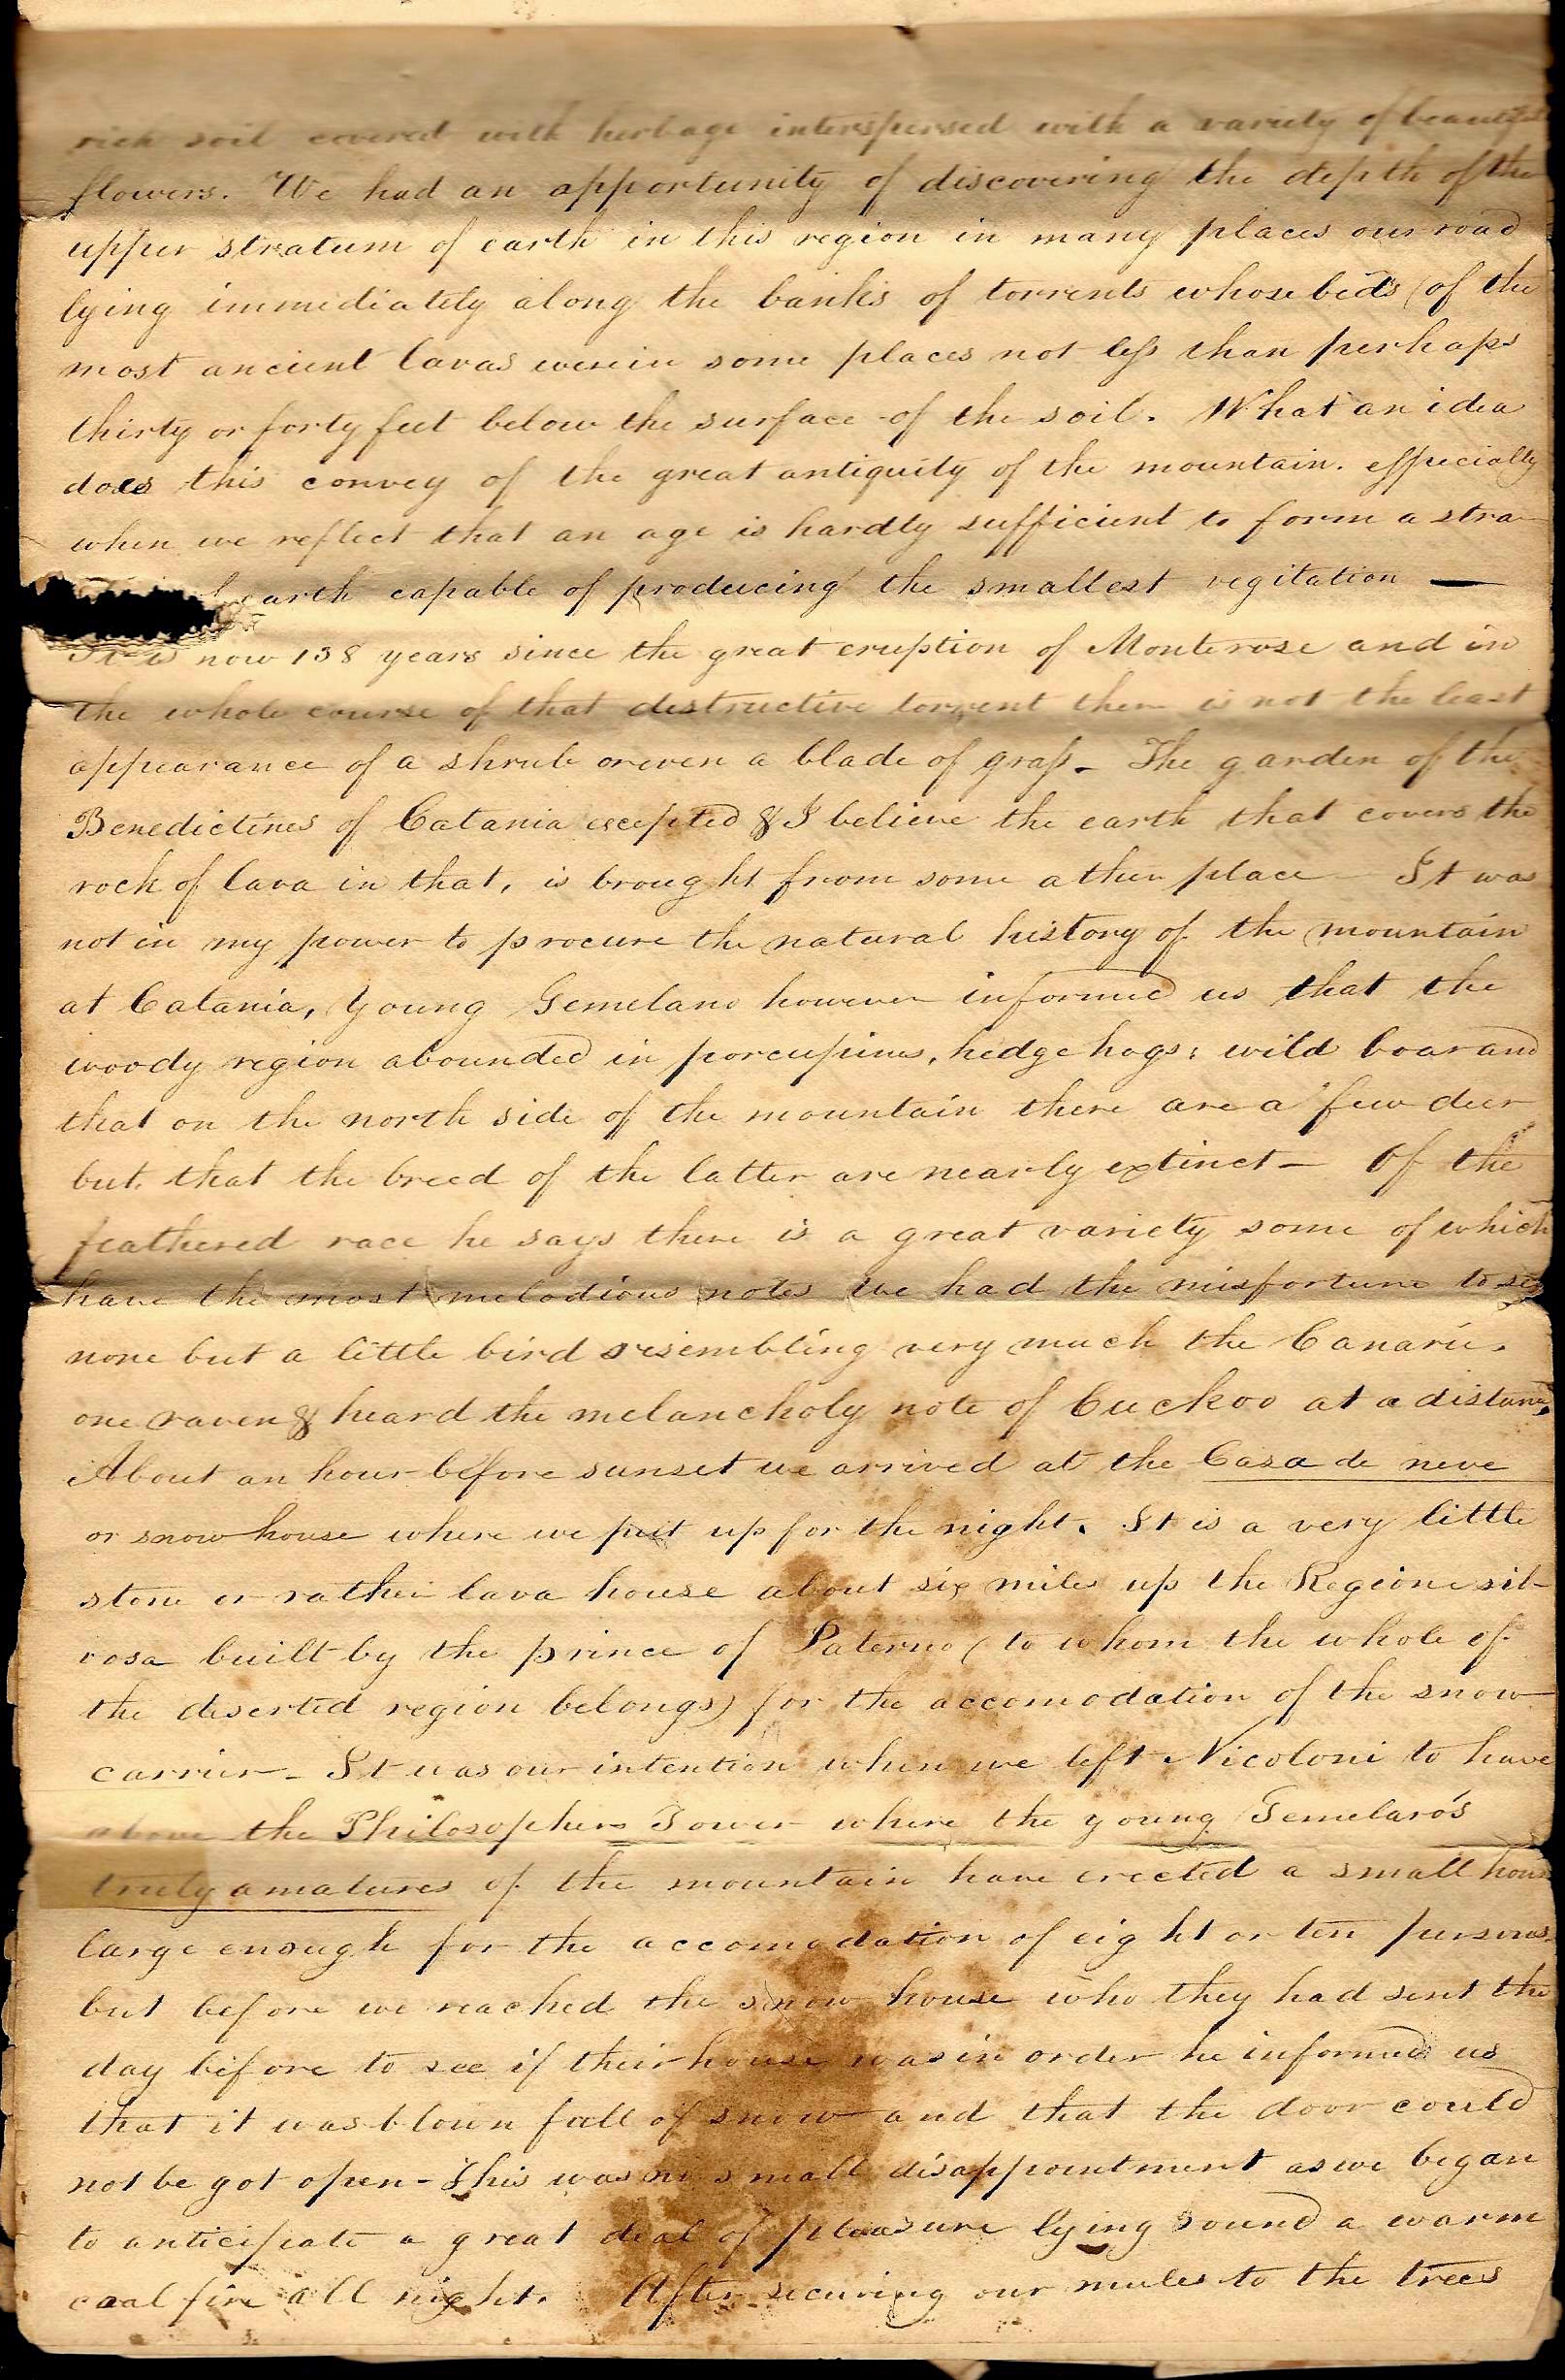 rich soil covered with herbage interspersed with a variety of beautiful
flowers. We had an opportunity of discovering the depth of the
upper stratum of earth in this region in many places our road
lying immediately along the banks of torrents whose beds (of the
most ancient lavas were in some places not less than perhaps
thirty or forty feet below the surface of the soil. What an idea
does this convey of the great antiquity of the mountain. especially
when we reflect that an age is hardly sufficient to form a stra-
earth capable of producing the smallest vegitation —
It is now 138 years since the great eruption of Monterose and in
the whole course of that destructive torrent there is not the least
appearance of a shrub or even a blade of grass - The garden of the
Benedictines of Catania excepted & I believe the earth that covers the
rock of lava in that, is brought from some other place — It was
not in my power to procure the natural history of the mountain
at Catania, Young Gemelano however informed us that the
woody region abounded in porcupines, hedge hogs; wild boar and
that on the north side of the mountain there are a few deer
but that the breed of the latter are nearly extinct — Of the
feathered race he says there is a great variety some of which
have the most melodious notes we had the misfortune to see
none but a little bird resembling very much the Canarie.
one raven & heard the melancholy note of Cuckoo at a distance,
About an hour before sunset we arrived at the Casa de neve
or snow house where we put up for the night. It is a very little
stone or rather lava house about six miles up the Regione sil-
vosa built by the prince of Paterno (to whom the whole of
the deserted region belongs) for the accomodation of the snow
carrier - It was our intention when we left Nicoloni to have
above the Philosophers Tower where the young Gemelaro's
truly amatures of the mountain have erected a small house
large enough for the accomodation of eight or ten persons
but before we reached the snow house who they had sent the
day before to see if their house was in order he informed us
that it was blown full of snow and that the door could
not be got open - This was no small disappointment as we began
to anticipate a great deal of pleasure lying round a warm
coal fire all night. After securing our mules to the trees